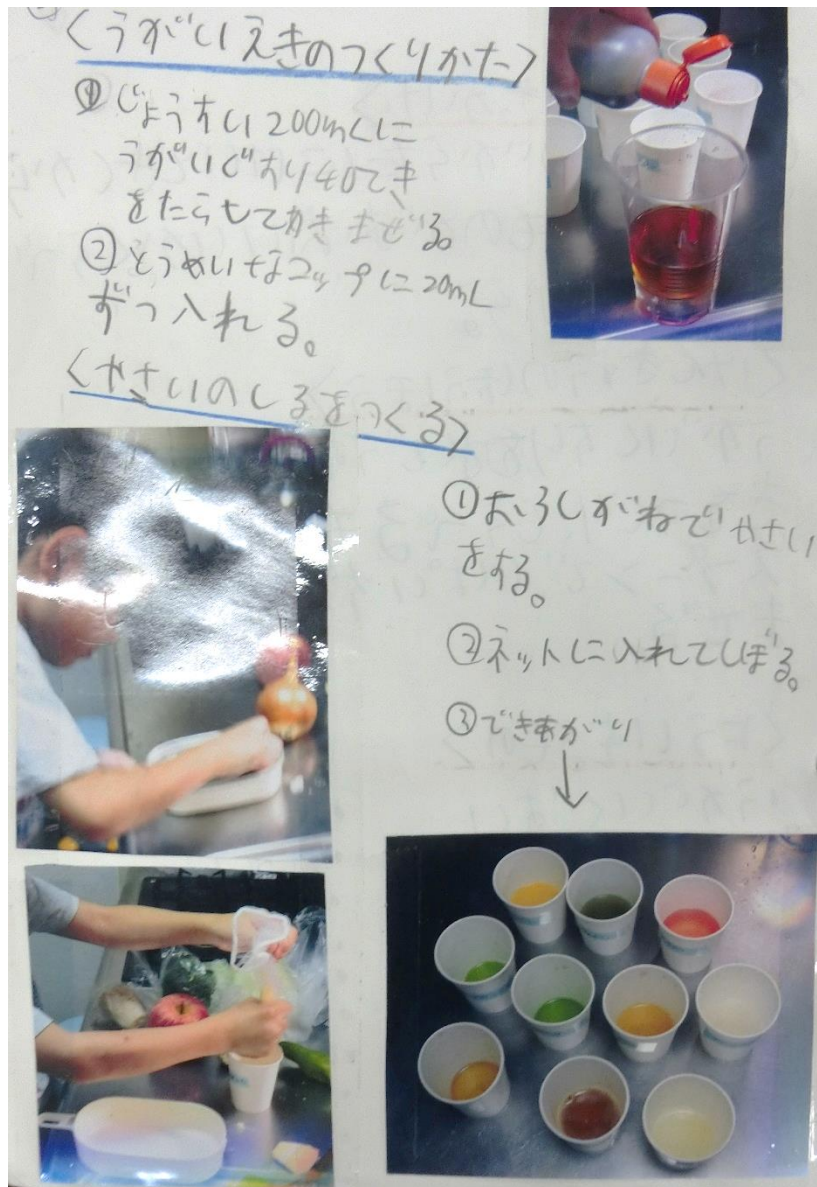 〈うがいえきのつくりかた〉
① じょうすい200mLに
うがいぐすり40てき
をたらしてかきまぜる。
② とうめいなコップに20mL
ずつ入れる。
〈やさいのしるをつくる〉
① おろしがねでやさい
をする。
② ネットに入れてしぼる。
③ できあがり
↓